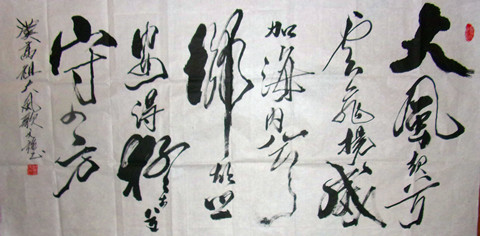 大風起兮
雲飛揚威
加海内兮
歸故鄉
安得猛士兮
守四方
漢高祖大風歌